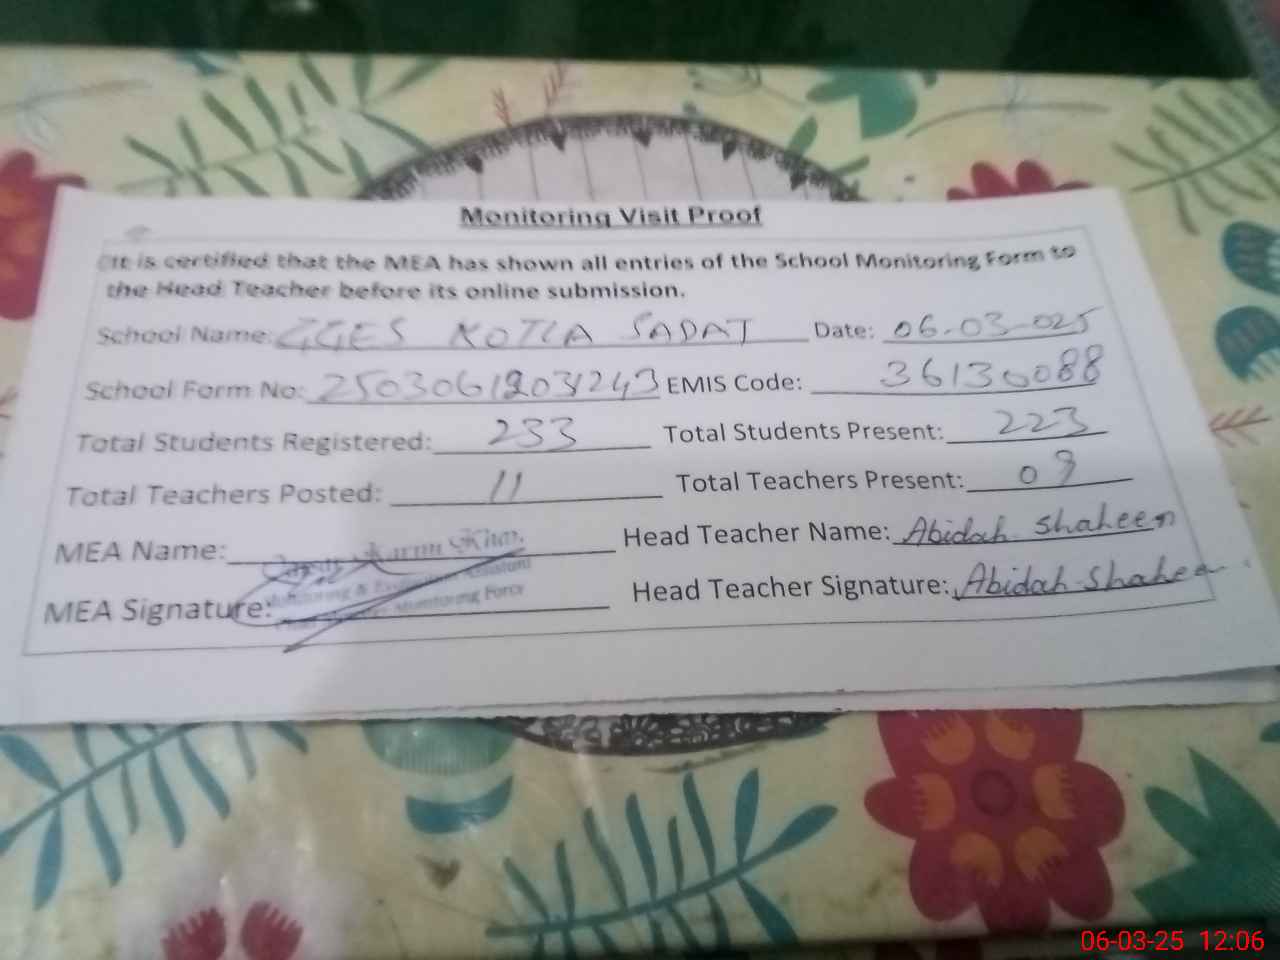 Monitoring Visit Proof
It is certified that the MEA has shown all entries of the School Monitoring Form to
the Head Teacher before its online submission.
School Name: GGES KOTLA SADAT Date: 06-03-025
School Form No: 25030612031243 EMIS Code: 36130088
Total Students Registered: 233 Total Students Present: 223
Total Teachers Posted: 11 Total Teachers Present: 09
MEA Name: Karim Khan Head Teacher Name: Abidah Shaheen
MEA Signature: Monitoring & Evaluation Assistant Monitoring Force Head Teacher Signature: Abidah Shaheen
06-03-25 12:06